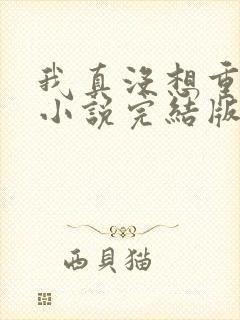 我真没想重
小說完結版
西貝猫